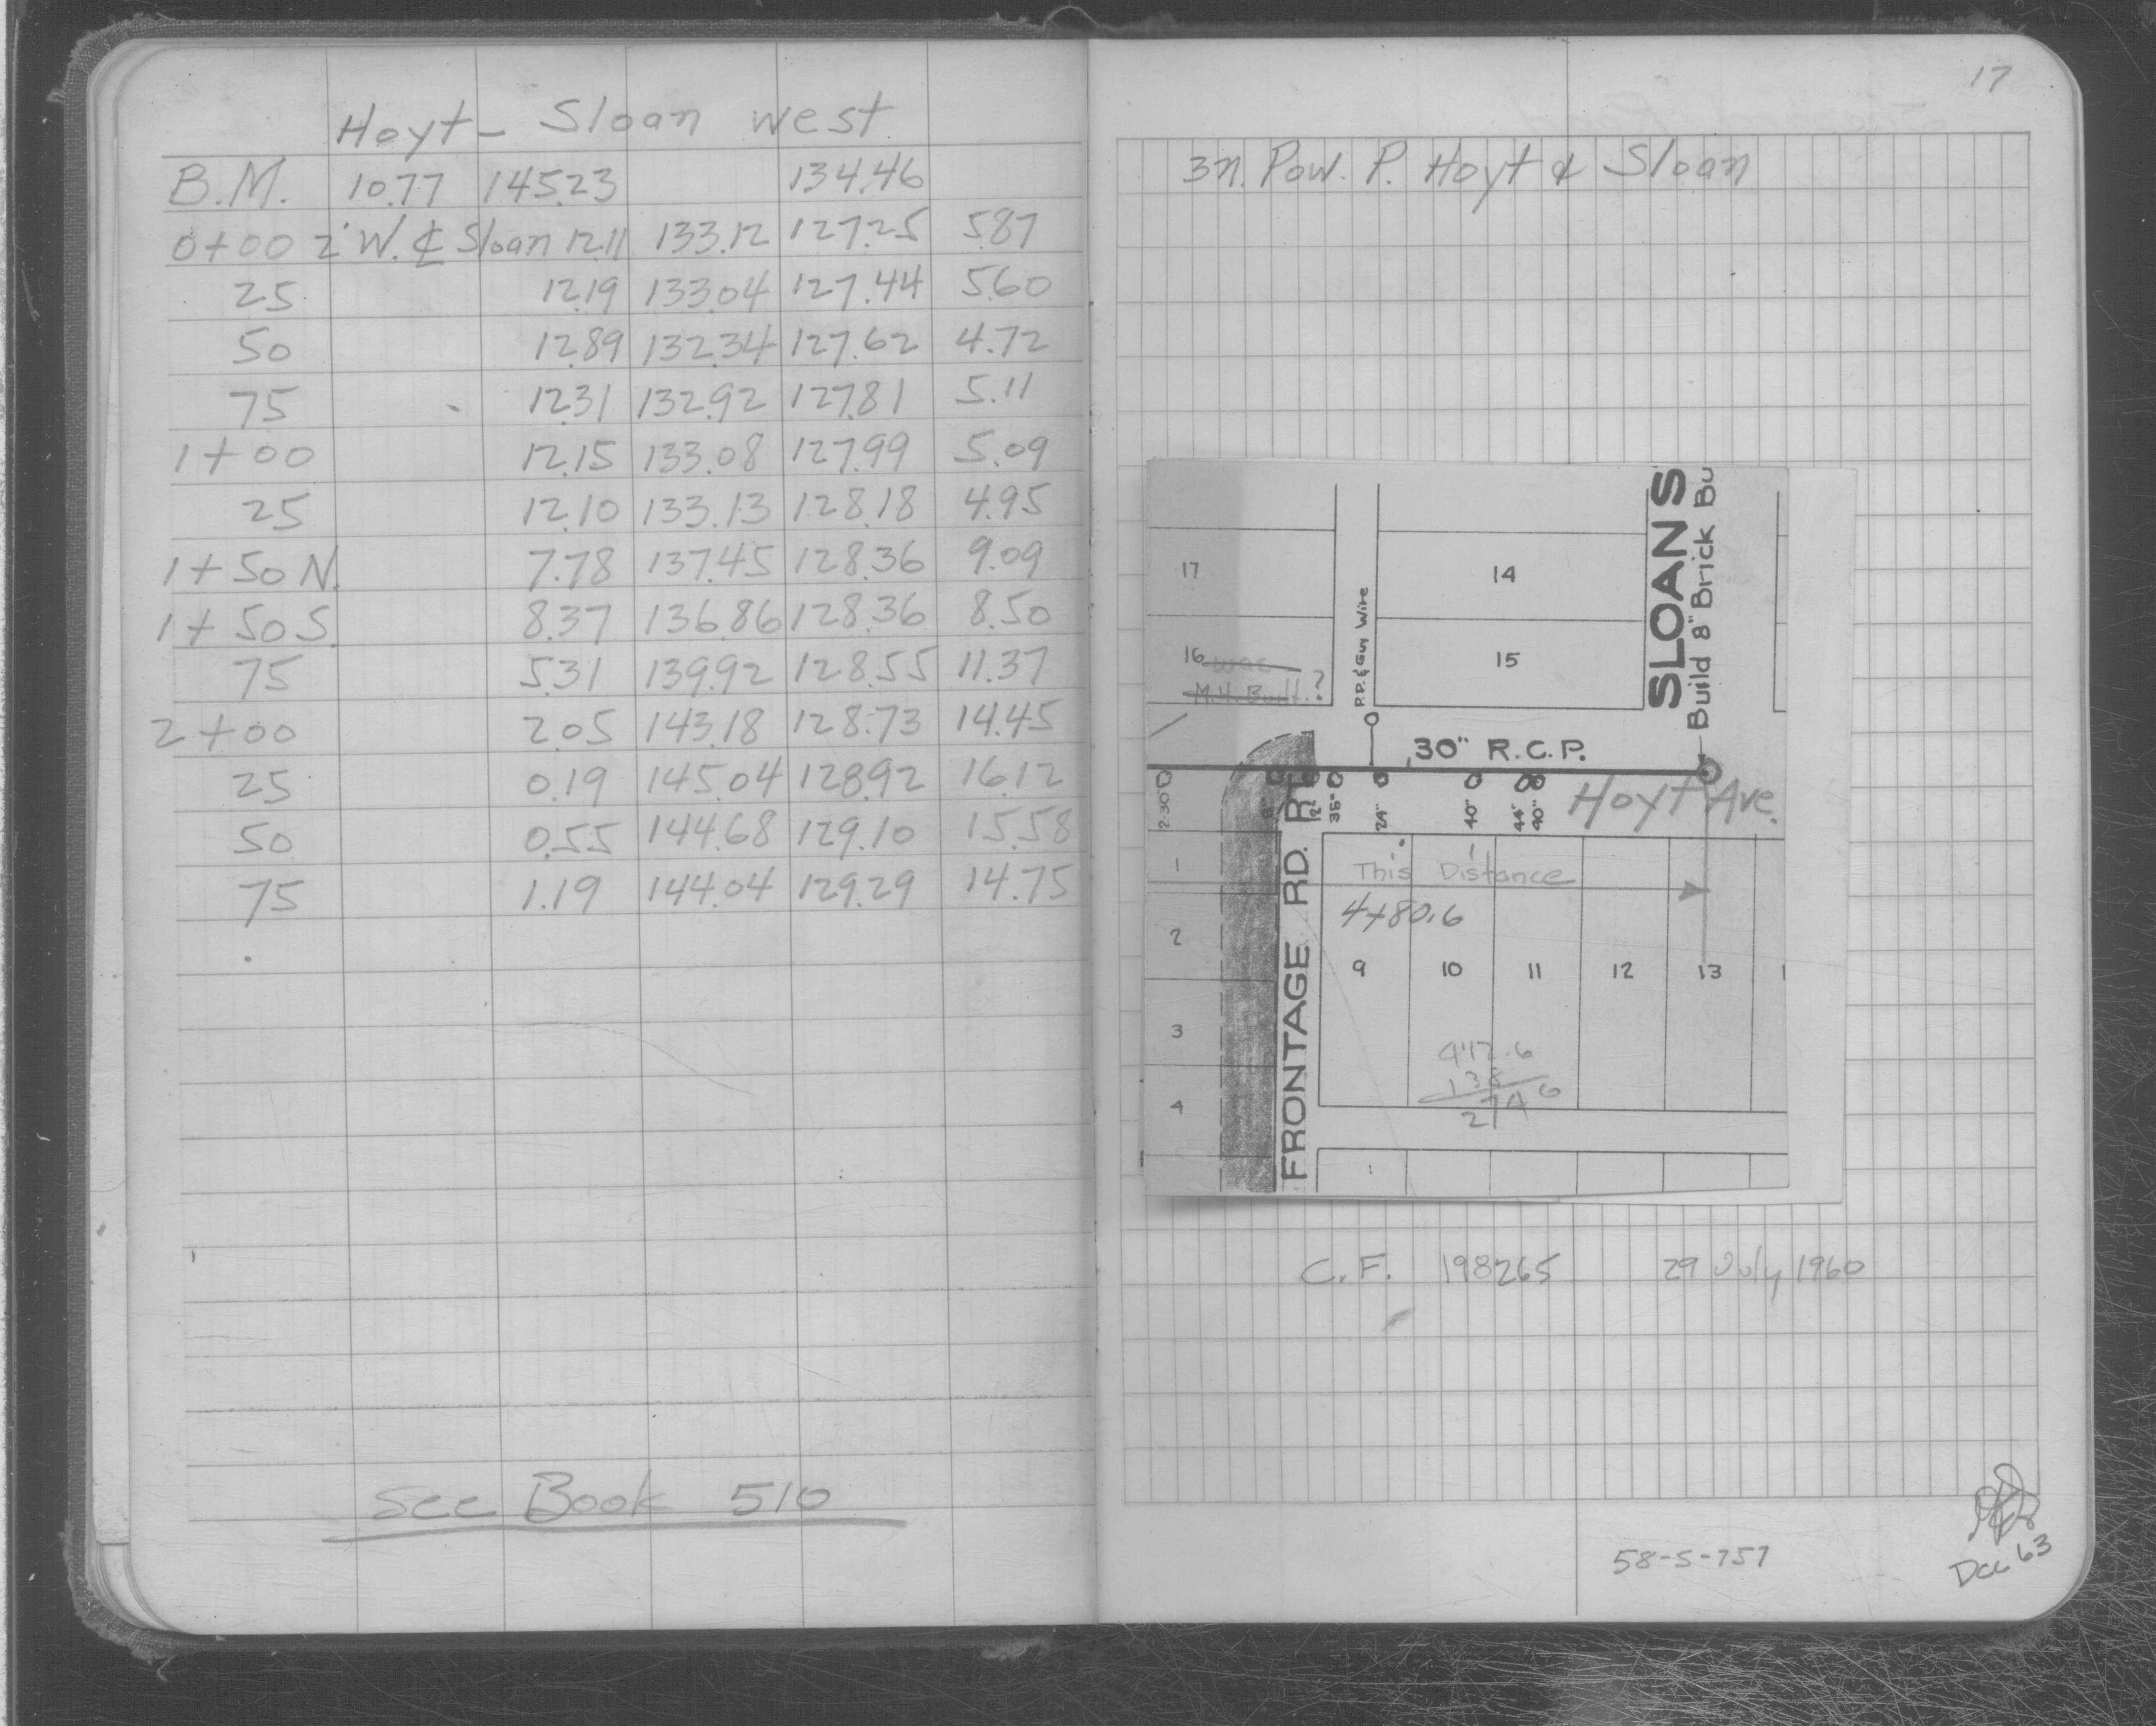 Hoyt - Sloan west
B.M. 10.77 145.23 134.46
0+00 2' W. ₵ Sloan 12.11 133.12 127.25 5.87
25 12.19 133.04 127.44 5.60
50 12.89 132.34 127.62 4.72
75 12.31 132.92 127.81 5.11
1+00 12.15 133.08 127.99 5.09
25 12.10 133.13 128.18 4.95
1+50 N. 7.78 137.45 128.36 9.09
1+50 S. 8.37 136.86 128.36 8.50
75 5.31 139.92 128.55 11.37
2+00 2.05 143.18 128.73 14.45
25 0.19 145.04 128.92 16.12
50 0.55 144.68 129.10 15.58
75 1.19 144.04 129.29 14.75
See Book 510
17
3n. Pow. P. Hoyt & Sloan
SLOANS
Build 8" Brick Bu
17
14
P.P. & Guy Wire
16
was
15
M.H. Built ?
30" R.C.P.
2.30
36"
24"
40"
44"
40"
Hoyt Ave.
FRONTAGE RD.
1
This Distance
4+80.6
2
9 10 11 12 13
3
412.6
138
274 6
4
C.F. 198265 29 July 1960
58-S-757
Dec 63